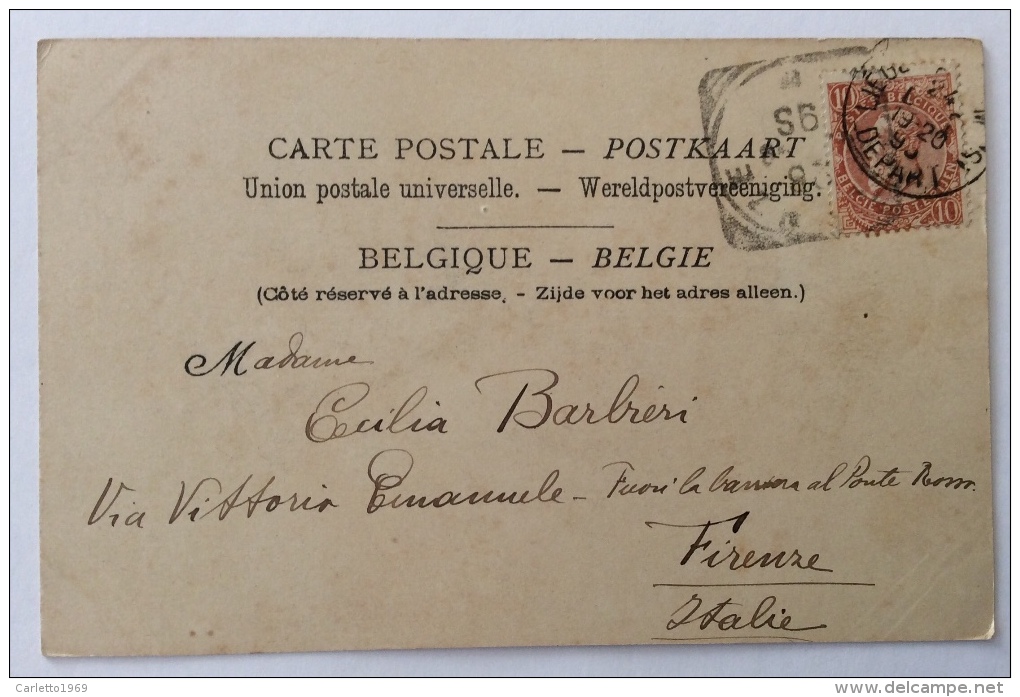 CARTE POSTALE — POSTKAART
Union postale universelle. — Wereldpostvereeniging.
BELGIQUE — BELGIE
(Côté réservé à l'adresse. - Zijde voor het adres alleen.)
10
BELGIQUE
BELGIE POSTERIJEN
10
LIEGE
19-20
DEPART
Madame
Cecilia Barbieri
Via Vittorio Emanuele - Fuori la barriera al Ponte Rosso.
Firenze
Italie
Carletto1969
www.delcampe.net